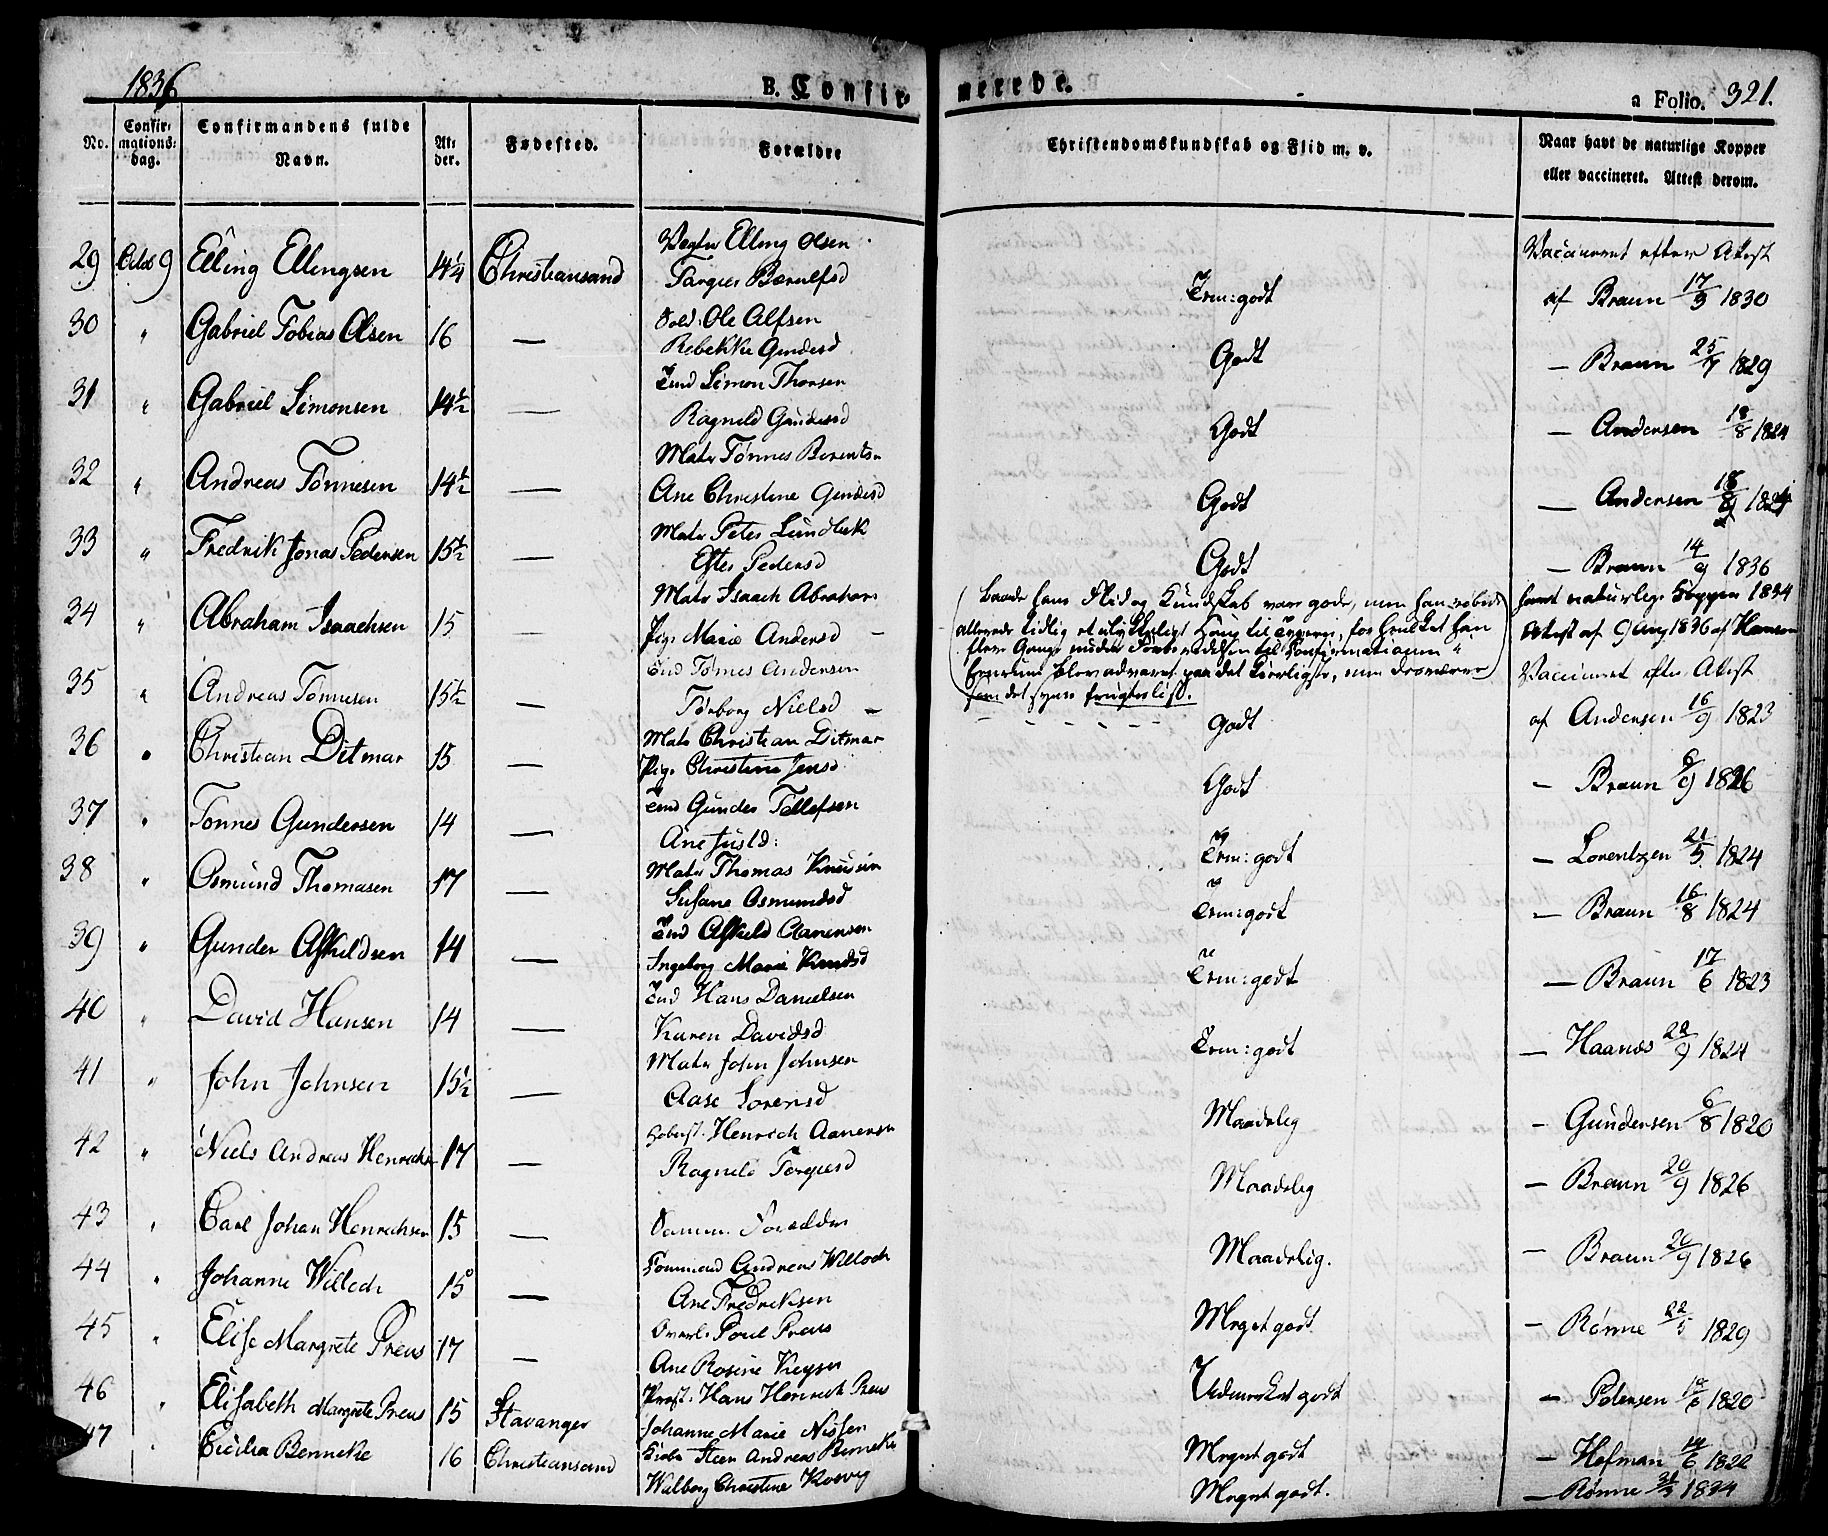 1836 B. Confirmerede. a Folio. 321.
No. Confirmationsdag. Confirmandens fulde Navn. Alder. Fødested. Forældre Christendomskundskab og Flid m. v. Naar havt de naturlige Kopper eller vaccineret. Attest derom.
29 Octob 9 Elling Ellingsen 14 1/4 Christiansand Elling Olsen Vaccineret efter Attest
Tm: godt af Braun 17/3 1830
30 " Gabriel Tobias Olsen 16 — Sold. Ole Alfsen
Rebekke Gundersd Godt — Braun 25/7 1829
31 " Gabriel Simonsen 14 1/2 — Simon Thorsen
Ragnild Gundersd Godt — Andersen 18/8 1824
32 " Andreas Tønnesen 14 1/2 — Matr Tønnes Berentsn
Ane Christine Gundersd Godt — Andersen
33 " Fredrik Jonas Pedersen 15 1/2 — Matr Peter Lundbek
Pedersd Godt — Braun 14/9 1836
34 " Abraham Isaachsen 15 — Matr Isaach Abraham
Pige Marie Andersd — Baade hans Flid og Kundskab vare gode, men han
allerede tidlig et ulykkeligt Hang til
flere Gange under Forberedelsen til Confirmationen
blev advaret paa det kierligste, men
som det synes frugtesløst.
havt naturlige Kopper 1834
Attest af 9 Aug 1836 af Hansen
35 " Andreas Tønnesen 15 1/2 — Tønnes Andersen Vaccineret efter Attest
Torborg Nielsd — Godt af Andersen 16/9 1823
36 " Christian Ditmar 15 — Matr Christian Ditmar
Pige Christine Jensd Godt — Braun 6/9 1826
37 " Tønnes Gundersen 14 — Gunder Tellefsen
Ane Juls: Tm: godt — Lorentzen 21/5 1824
38 " Osmund Thomasen 17 — Matr Thomas Knudsen
Susane Osmundsd Tm: godt — Braun 16/8 1824
39 " Gunder Askildsen 14 — Askild Aanensen
Ingeborg Marie Knudsd Tm: godt — Braun 17/6 1823
40 " David Hansen 14 — Hans Danielsen
Karen Davidsd Tm: godt — Haanæs 22/9 1824
41 " John Johnsen 15 1/2 — Matr John Johnsen
Aase Sørensd Maadelig — Gundersen 6/8 1820
42 " Niels Andreas Henrichs 17 — Henrich Aanensen
Ragnild Torjusd Maadelig — Braun 20/9 1826
43 " Carl Johan Henrichsen 15 — Samme Forældre Maadelig. — Braun 20/9 1826
44 " Johanne Willoch 15 — Andreas Willoch
Ane Fredriksen Meget godt. — Rønne 22/5 1829
45 " Elise Margrete Preus 17 — Poul Preus
Ane Rosine Keyser Udmerket godt — Petersen 12/6 1820
46 " Elisabeth Margrete Preus 15 Stavanger Prost. Hans Henrich Preus
Johanne Marie Nissen Meget godt — Hofman 14/6 1822
47 " Cicilia Benneke 16 Christiansand Steen Andreas Benneke
Walborg Christine Meget godt. — Rønne 1834